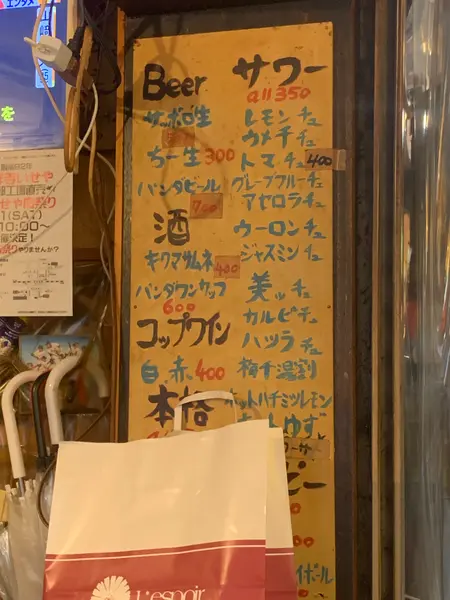 エンタメ
を
Beer
サッポロ生
ちー生 300
パンダビール
700
酒
キクマサムネ
400
パンダワンカップ
600
コップワイン
白 赤 400
本格
サワー
all 350
レモンチュ
ウメチチュ
トマチュ 400
グレープフルーチュ
アセロラチュ
ウーロンチュ
ジャスミンチュ
美ッチュ
カルピチュ
ハツラチュ
梅干湯割
ホットハチミツレモン
ホットゆず
ピー
イボール
(SAT)
10:00～
L'espoir